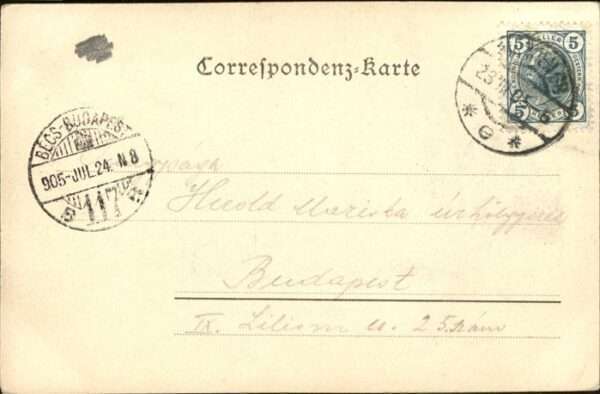 Correspondenz-Karte
5 HELLER 5
5 5
BÉCS-BUDAPEST
905-JUL.24. N8
117
Herold Mariska úrhölgynek
Budapest
IX. Liliom u. 25. szám